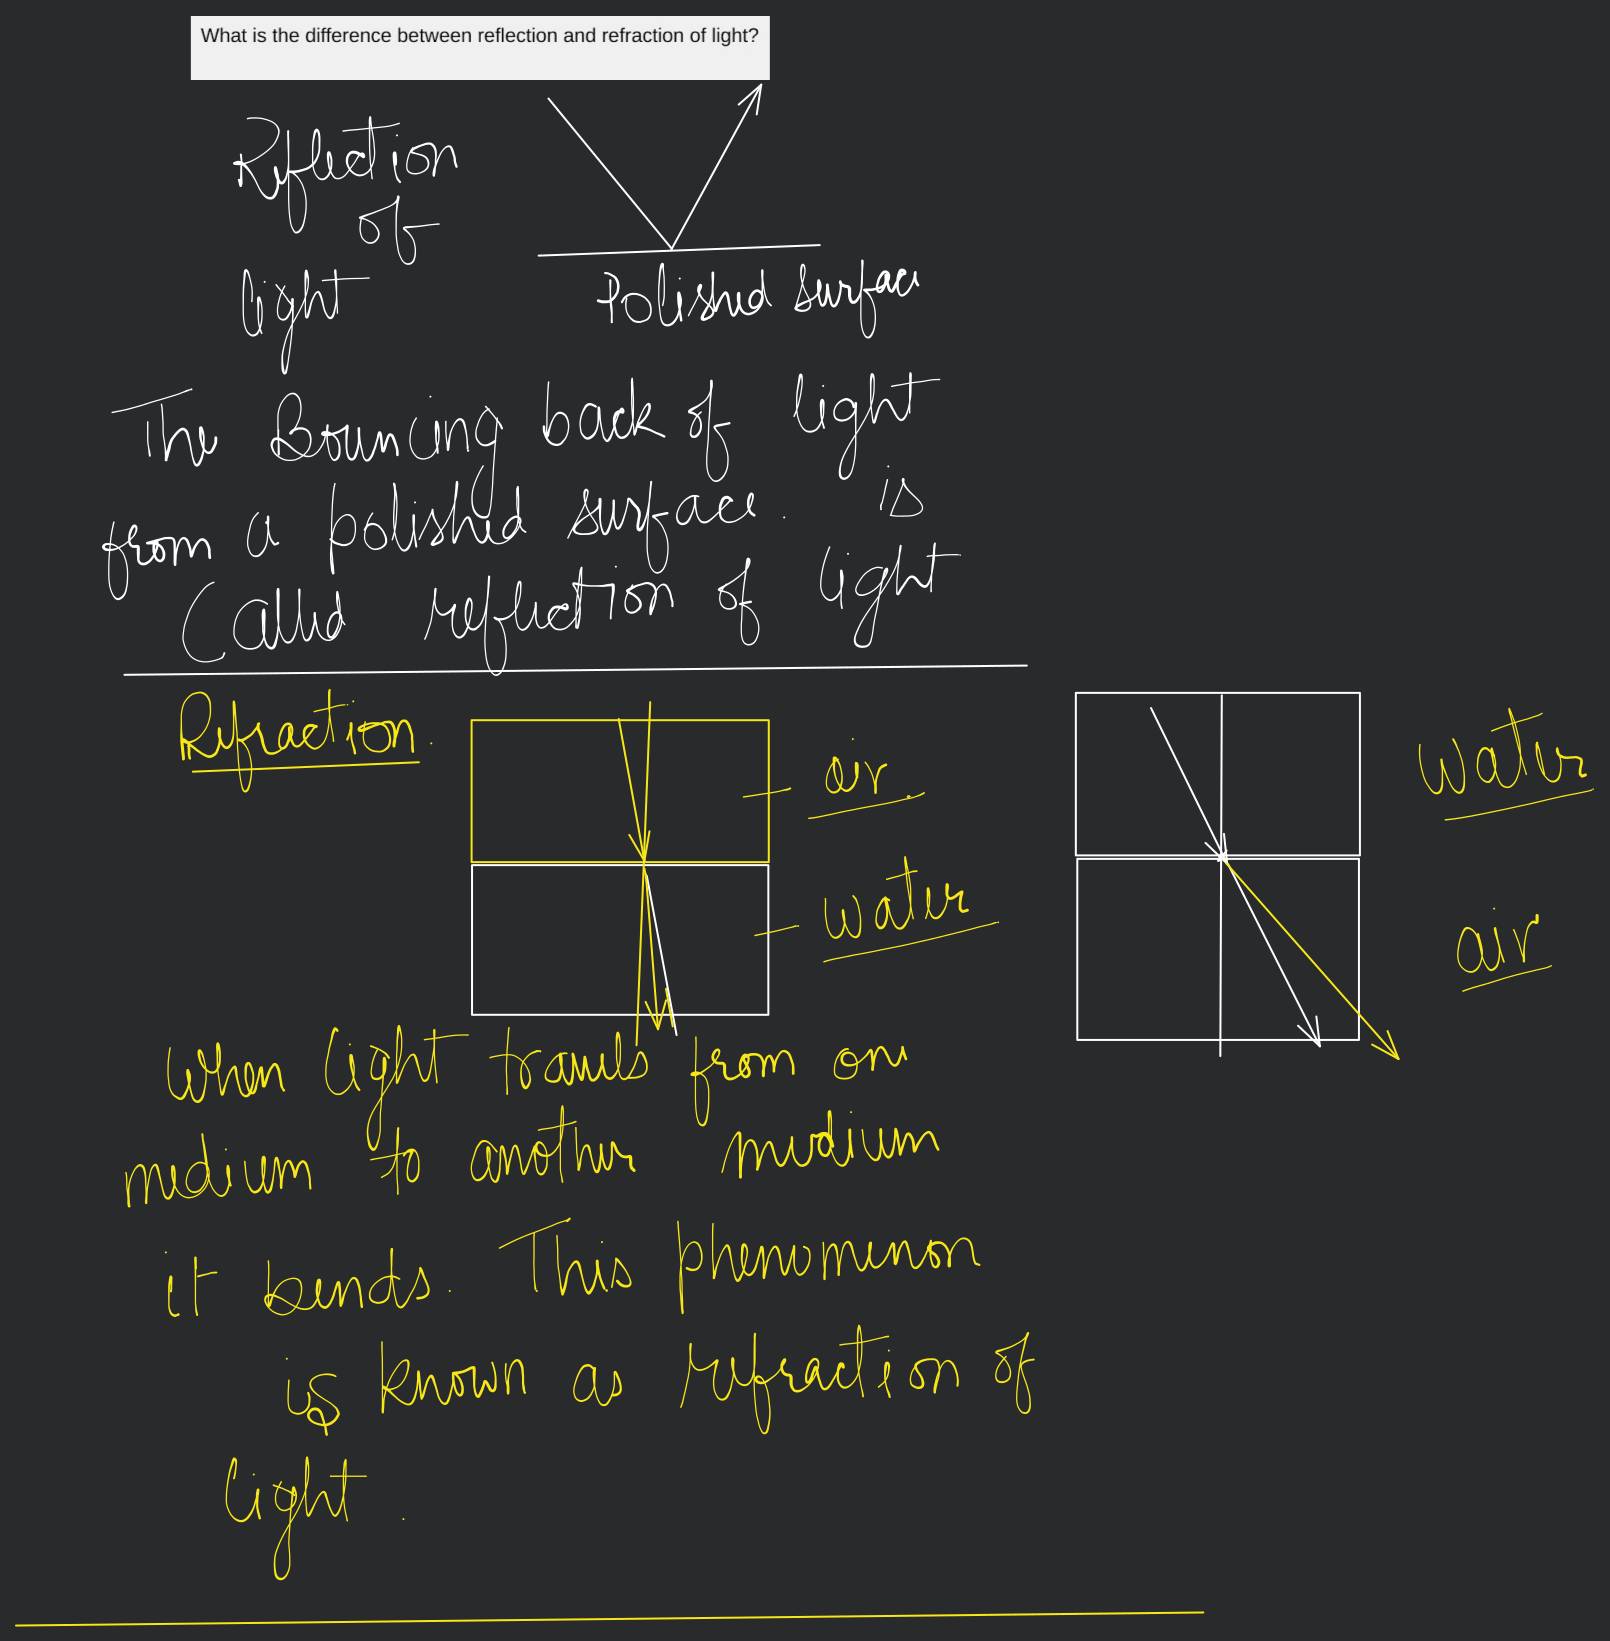 What is the difference between reflection and refraction of light?
Reflection
of
light
Polished surface
The Bouncing back of light
from a polished surface. is
Called reflection of light
Refraction.
air.
water
water
air
When light travels from one
medium to another medium
it bends. This phenomenon
is known as refraction of
light.